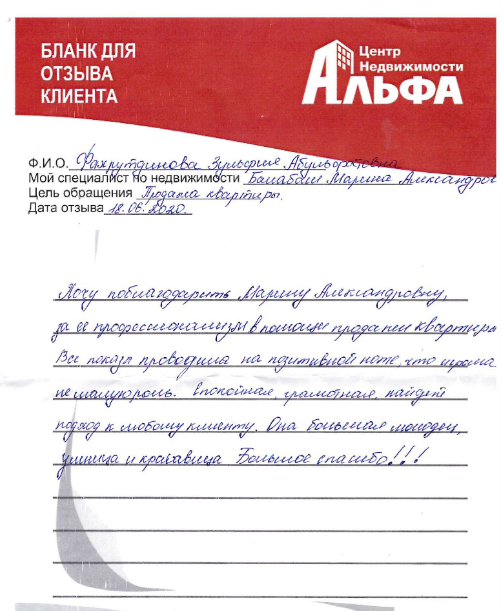 БЛАНК ДЛЯ
ОТЗЫВА
КЛИЕНТА
Центр
Недвижимости
АЛЬФА
Ф.И.О. Фахрутдинова Зульфия Абульфатовна
Мой специалист по недвижимости Балабаш Марина Александро
Цель обращения Продажа квартиры.
Дата отзыва 18.06.2020.
Хочу поблагодарить Марину Александровну,
за её профессионализм в помощи продажи квартиры
Все показы проводила на позитивной ноте, что играла
не малую роль. Спокойная, грамотная, найдет
подход к любому клиенту. Она большая молодец,
умница и красавица Большое спасибо!!!